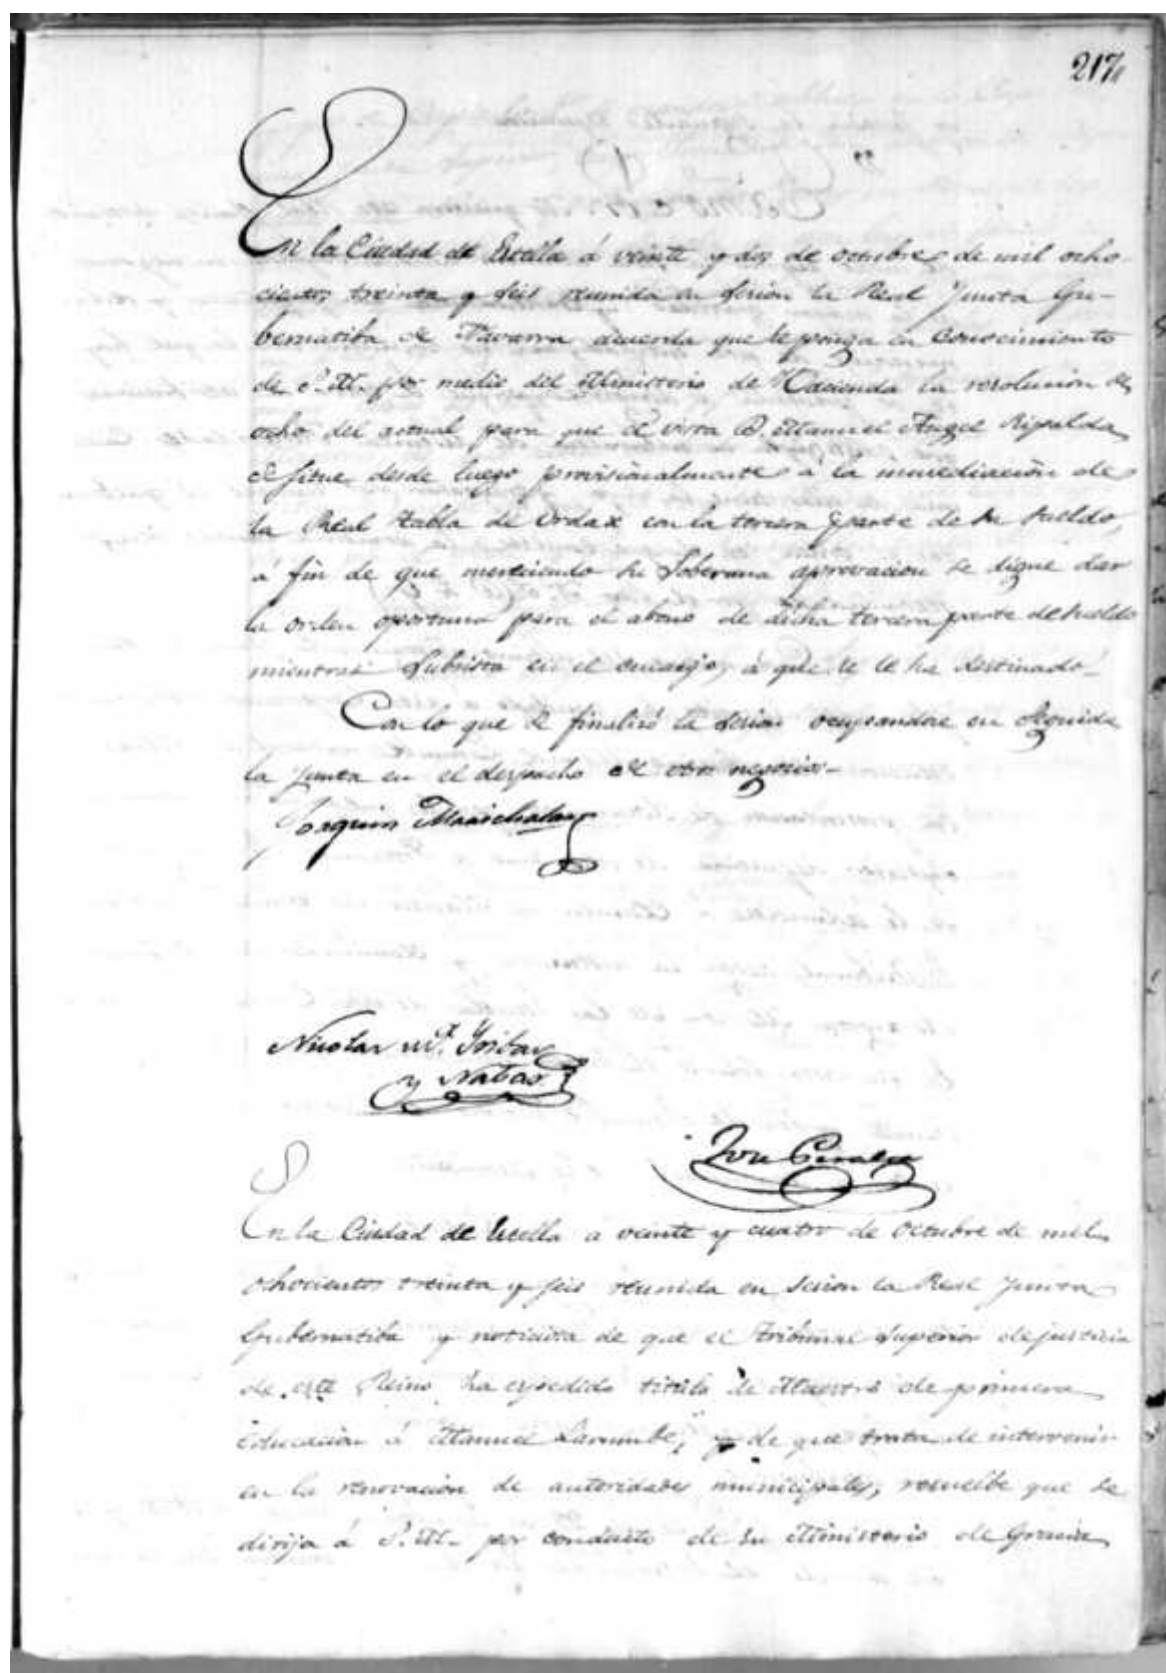 217
En la Ciudad de Estella á veinte y dos de octubre de mil ocho-
cientos treinta y seis reunida en sesion la Real Junta Gu-
bernatiba de Navarra acuerda que se ponga en conocimiento
de S. M. por medio del Ministerio de Hacienda la resolucion de
ocho del actual para que el vista D. Manuel Angel Ripalda
se situe desde luego provisionalmente á la inmediacion de
la Real tabla de Ordax con la tercera parte de su sueldo,
á fin de que mereciendo su Soberana aprovacion se digne dar
la orden oportuna para el abono de dicha tercera parte de sueldo
mientras subsista en el encargo, á que se le ha destinado.
Con lo que se finalizó la sesion ocupandose en seguida
la Junta en el despacho de otros negocios.
Joaquin Marichalar
Nicolas M.ª
y Nabas
Jose Peralta
En la Ciudad de Estella a veinte y cuatro de Octubre de mil
ochocientos treinta y seis reunida en sesion la Real Junta
Gubernatiba y noticiosa de que el tribunal Superior de justicia
de este Reino ha expedido titulo de Maestro de primera
educacion á Manuel Larumbe, y de que trata de intervenir
en la renovacion de autoridades municipales, resuelbe que se
dirija á S. M. por conducto de su Ministerio de Gracia